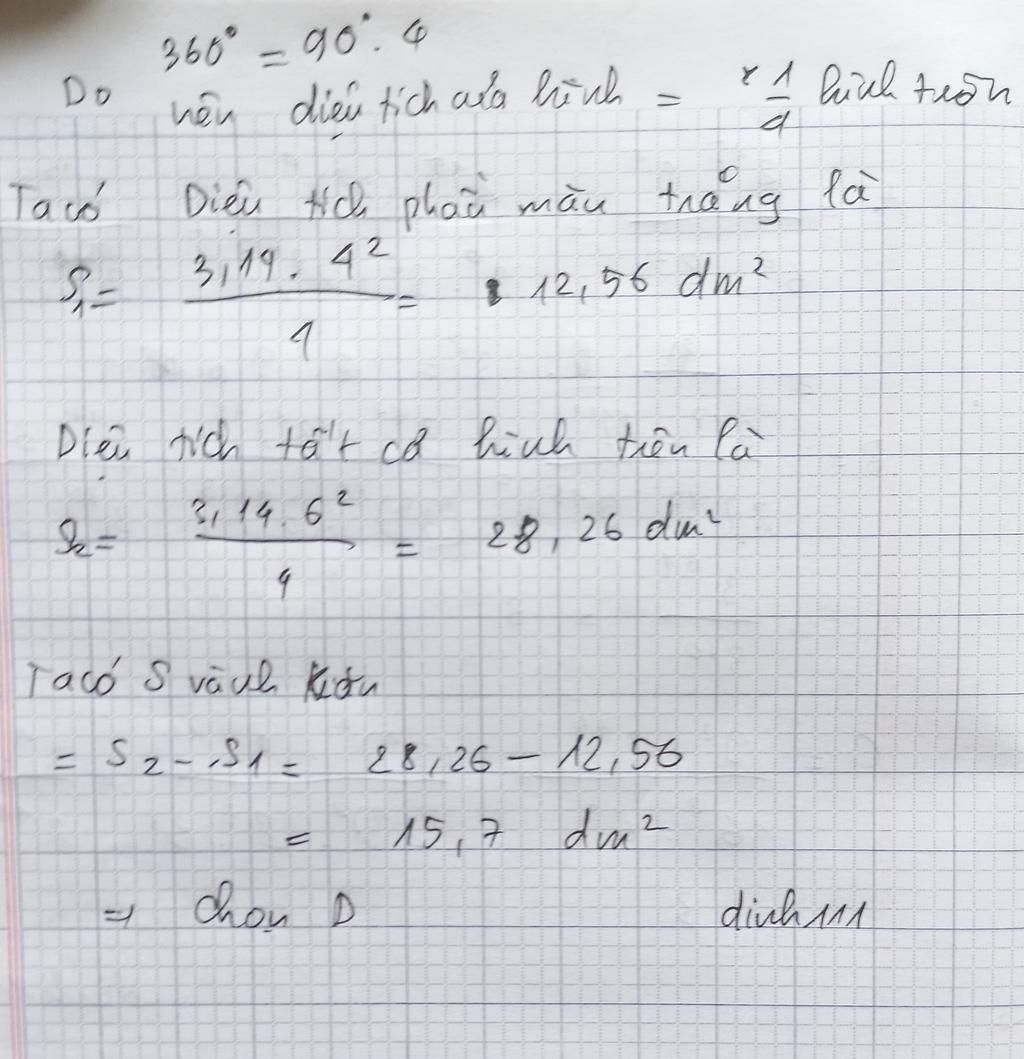 360° = 90° . 4
Do nên diện tích của hình = 1/4 hình tròn
Ta có Diện tích phần màu trắng là
S1 = 3,14 . 4² / 4 = 12,56 dm²
Diện tích tất cả hình trên là
S2 = 3,14 . 6² / 4 = 28,26 dm²
Ta có S vành
= S2 - S1 = 28,26 - 12,56
= 15,7 dm²
=> Chọn D dinh111